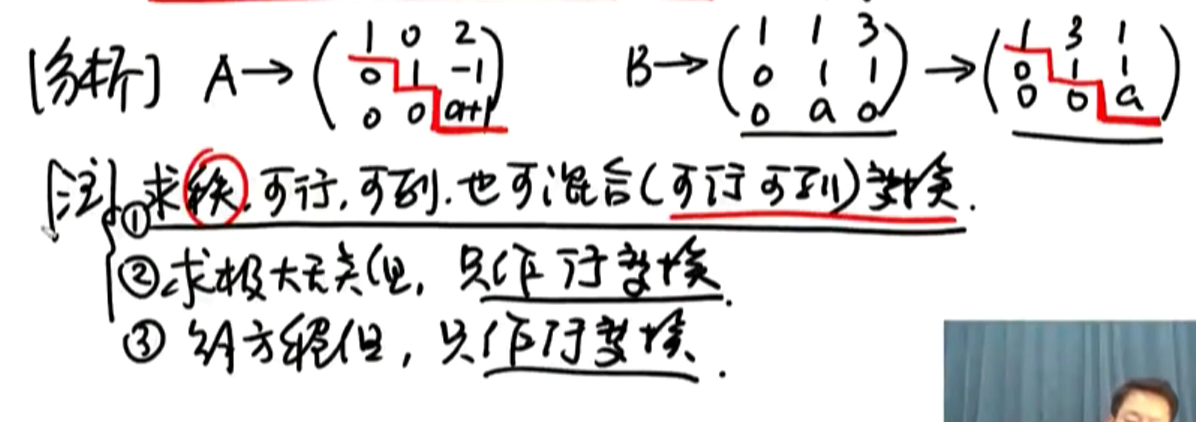 [分析] A→(1 0 2 0 1 -1 0 0 a+1) B→(1 1 3 0 1 1 0 a 0)→(1 3 1 0 1 1 0 0 a)
[注] ①求秩,可行,可列,也可混合(可行可列)变换.
②求极大无关组,只作行变换.
③解方程组,只作行变换.